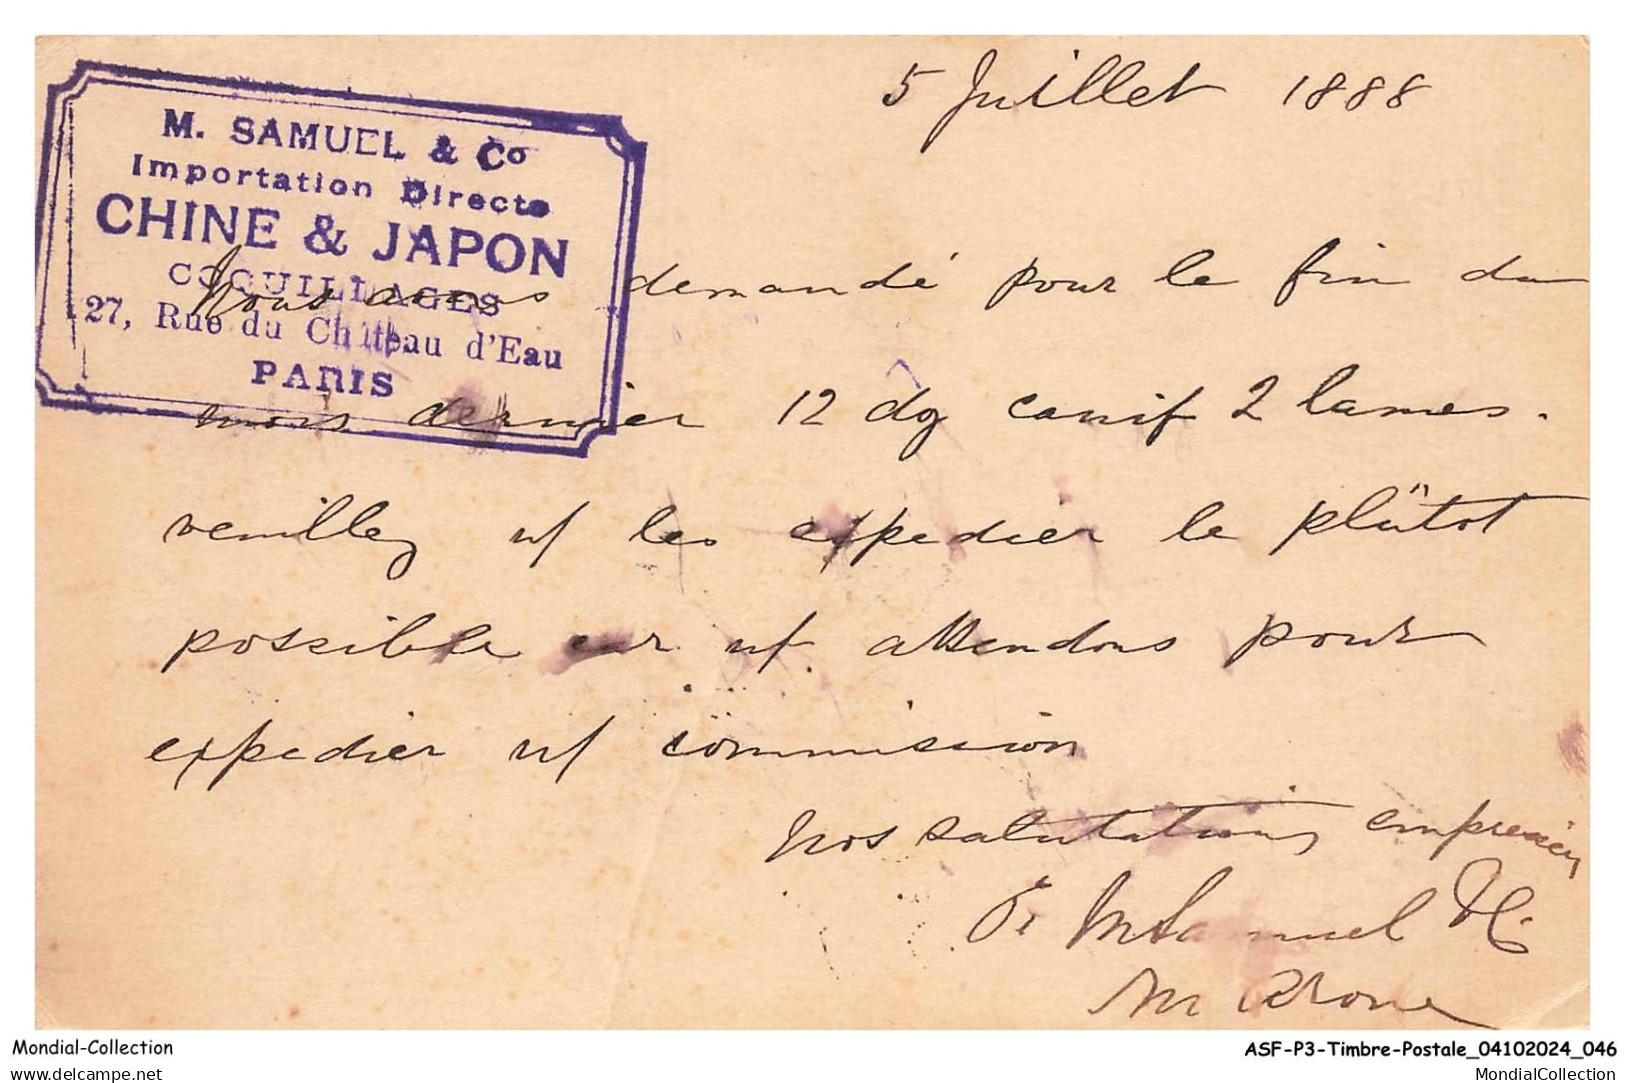 M. SAMUEL & Co
Importation Directe
CHINE & JAPON
COQUILLAGES
27, Rue du Château d'Eau
PARIS
5 Juillet 1888
Nous avons demandé pour le fin du
mois dernier 12 dz canif 2 lames.
veuillez n/ les expedier le plûtot
possible car n/ attendons pour
expedier n/ commission
Nos salutations empressées
Pr M Samuel & Co
M
Mondial-Collection
delcampe.net
ASF-P3-Timbre-Postale_04102024_046
MondialCollection